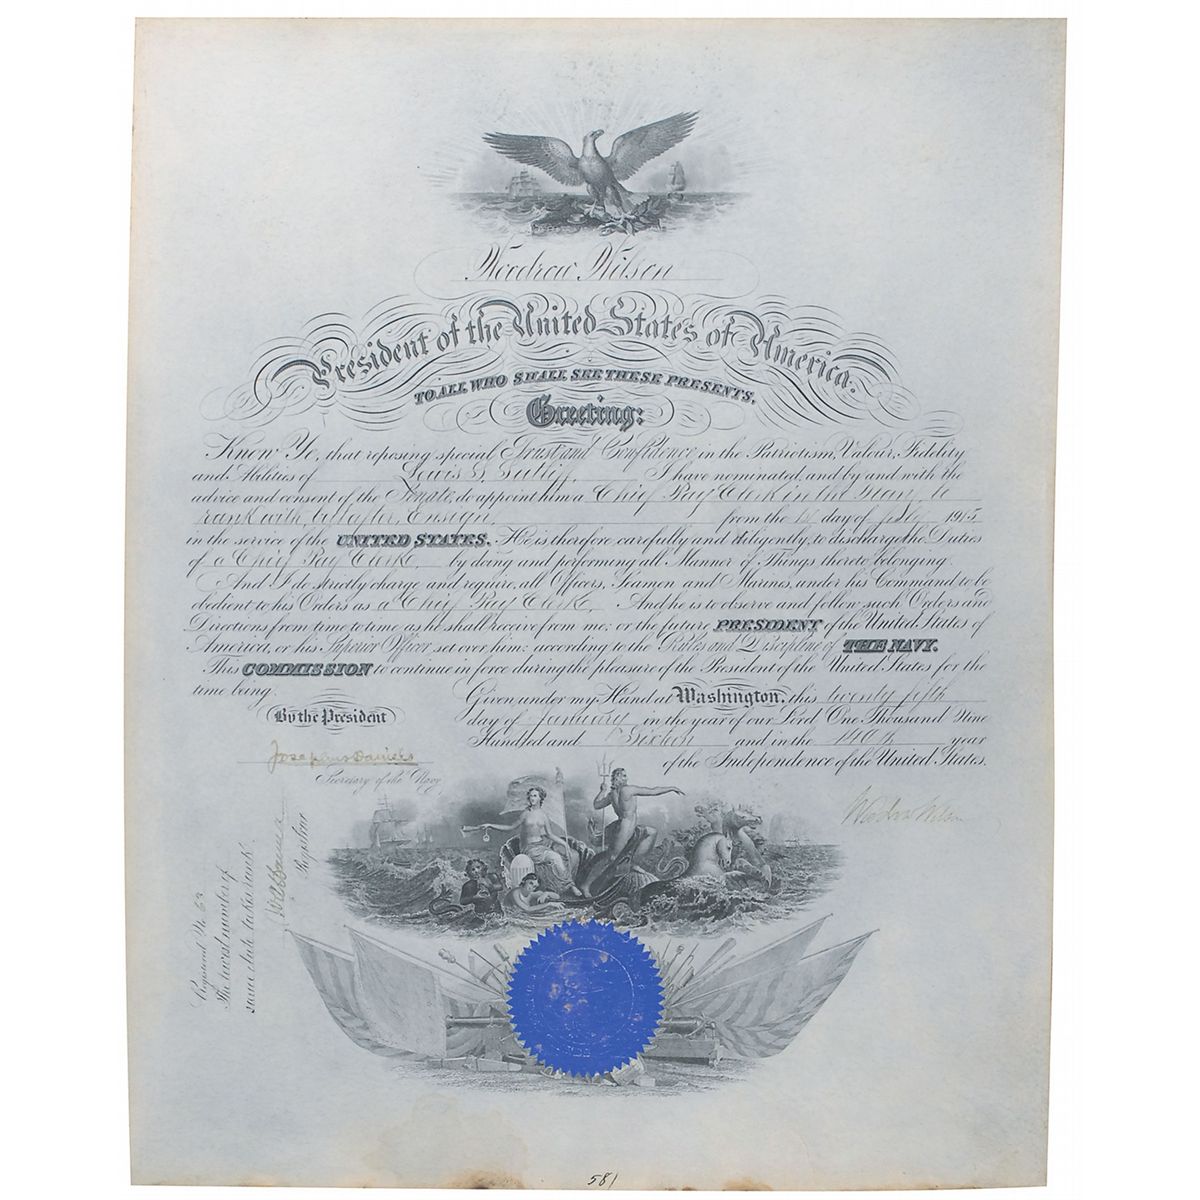 Woodrow Wilson
President of the United States of America.
TO ALL WHO SHALL SEE THESE PRESENTS,
Greeting:
Know Ye, that reposing special Trust and Confidence in the Patriotism, Valour, Fidelity
and Abilities of Lewis S. Sutliff, I have nominated, and by and with the
advice and consent of the Senate, do appoint him a Chief Pay Clerk in the Navy, to
rank with, but after, Ensign, from the 1st day of July 1915
in the service of the UNITED STATES. He is therefore carefully and diligently, to discharge the Duties
of a Chief Pay Clerk, by doing and performing all Manner of Things thereto belonging.
And I do strictly charge and require, all Officers, Seamen and Marines, under his Command to be
obedient to his Orders as a Chief Pay Clerk, And he is to observe and follow such Orders and
Directions from time to time as he shall receive from me; or the future PRESIDENT of the United States of
America, or his Superior Officer set over him; according to the Rules and Discipline of THE NAVY.
This COMMISSION to continue in force during the pleasure of the President of the United States for the
time being.
Given under my Hand at Washington, this twenty fifth
By the President
day of January in the year of our Lord One Thousand Nine
Hundred and Sixteen and in the 140th year
of the Independence of the United States.
Josephus Daniels
Secretary of the Navy
Woodrow Wilson
Registrar
Registered No 63
The lowest number of
same date takes rank.
581